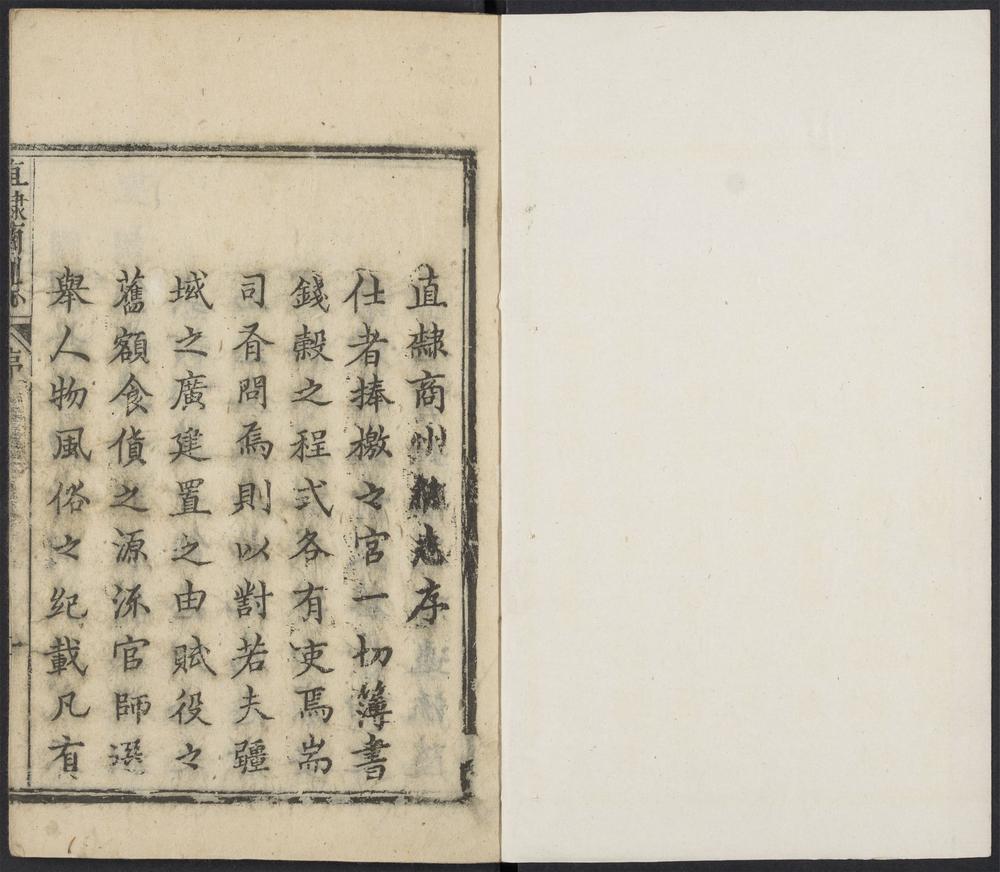 直隸商州總志序
仕者捧檄之官一切簿書
錢穀之程式各有吏焉耑
司肴問焉則以對若夫疆
域之廣建置之由賦役之
舊額食貨之源流官師選
舉人物風俗之紀載凡有
直隸商州志 序 一